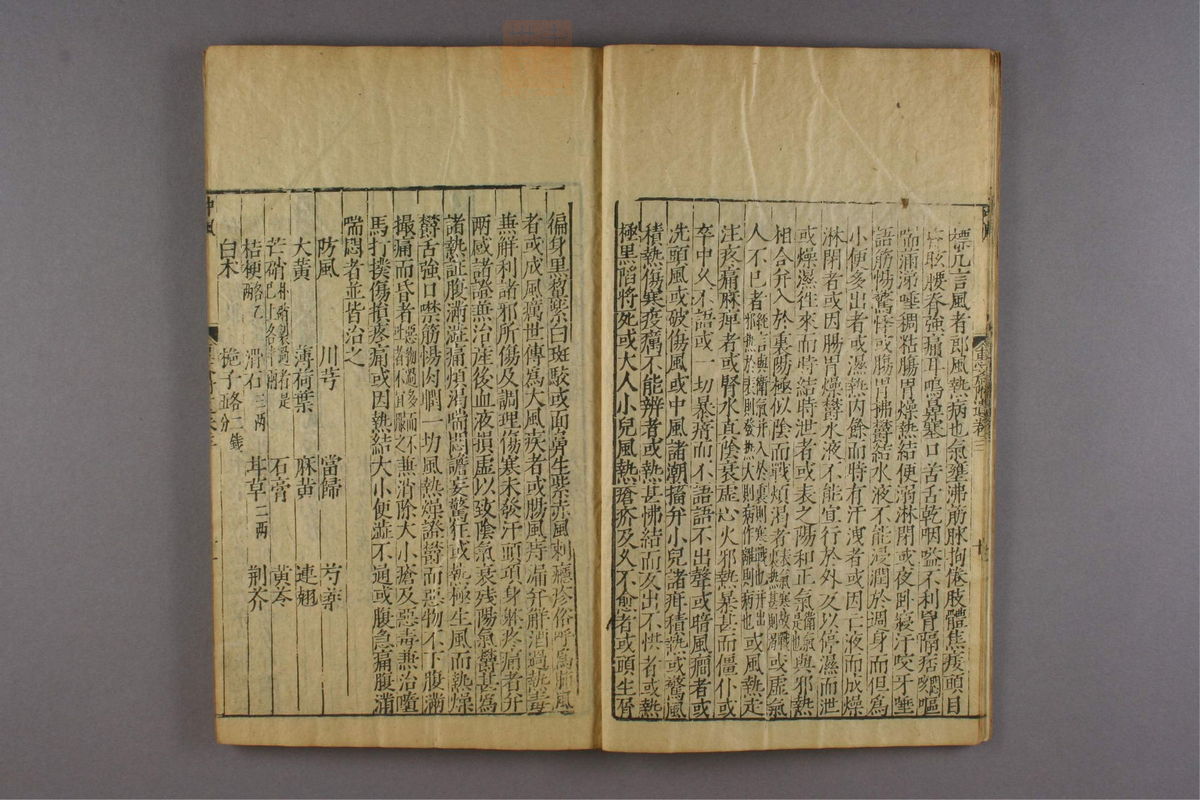 標凡言風者即風熱病也氣壅沸筋脉拘倦肢體焦痿頭目
眩腰脊強痛耳鳴鼻塞口苦舌乾咽嗌不利胷隔痞悶嘔
喘涕唾稠粘腸胃燥熱結便溺淋閉或夜卧寢汗咬牙睡
語筋惕驚悸或腸胃怫鬱結水液不能浸潤於周身而但爲
小便多出者或濕熱内餘而時有汗洩者或因亡液而成燥
淋閉者或因腸胃燥鬱水液不能宣行於外及以停濕而泄
或燥濕徃來而時結時泄者或表之陽和正氣衞氣是也與邪熱
相合并入於裏陽極似陰而戰煩渇者表氣寒故戰裏熱甚則渇或虛氣
人不已者經言與衞氣并入於裏則寒戰也并出邪熱於表則發熱大則病作離則病也或風熱走
注疼痛麻痺者或腎水真陰衰虛心火邪熱暴甚而僵仆或
卒中久不語或一切暴瘖而不語語不出聲或暗風癎者或
洗頭風或破傷風或中風諸潮搐并小兒諸疳積熱或驚風
積熱傷寒疫癘不能辨者或熱甚怫結而久出不快者或熱
極黑陷將死或大人小兒風熱瘡疥及久不愈者或頭生屑
徧身黑㾦紫白斑駁或面鼻生紫赤風刺癮疹俗呼爲肺風
者或成風癘世傳爲大風疾者或腸風痔漏并解酒過熱毒
兼解利諸邪所傷及調理傷寒未發汗頭項身疼疼痛者并
兩感諸證兼治産後血液損虛以致陰氣衰殘陽氣鬱甚爲
諸熱証腹滿澁痛煩渇喘悶譫妄驚狂或熱極生風而熱燥
鬱舌強口噤筋惕肉瞤一切風熱燥證鬱而惡物不下腹滿
撮痛而昏者惡物過多而不吐者不宜服之兼消除大小瘡及惡毒兼治墮
馬打撲傷損疼痛或因熱結大小便澁不通或腹急痛腹滿
喘悶者並皆治之
防風 川芎 當歸 芍藥
大黃 薄荷葉 麻黃 連翹
芒硝 石膏 黃芩
桔梗 滑石三两 甘草二两 荆芥
白术 梔子各二錢五分